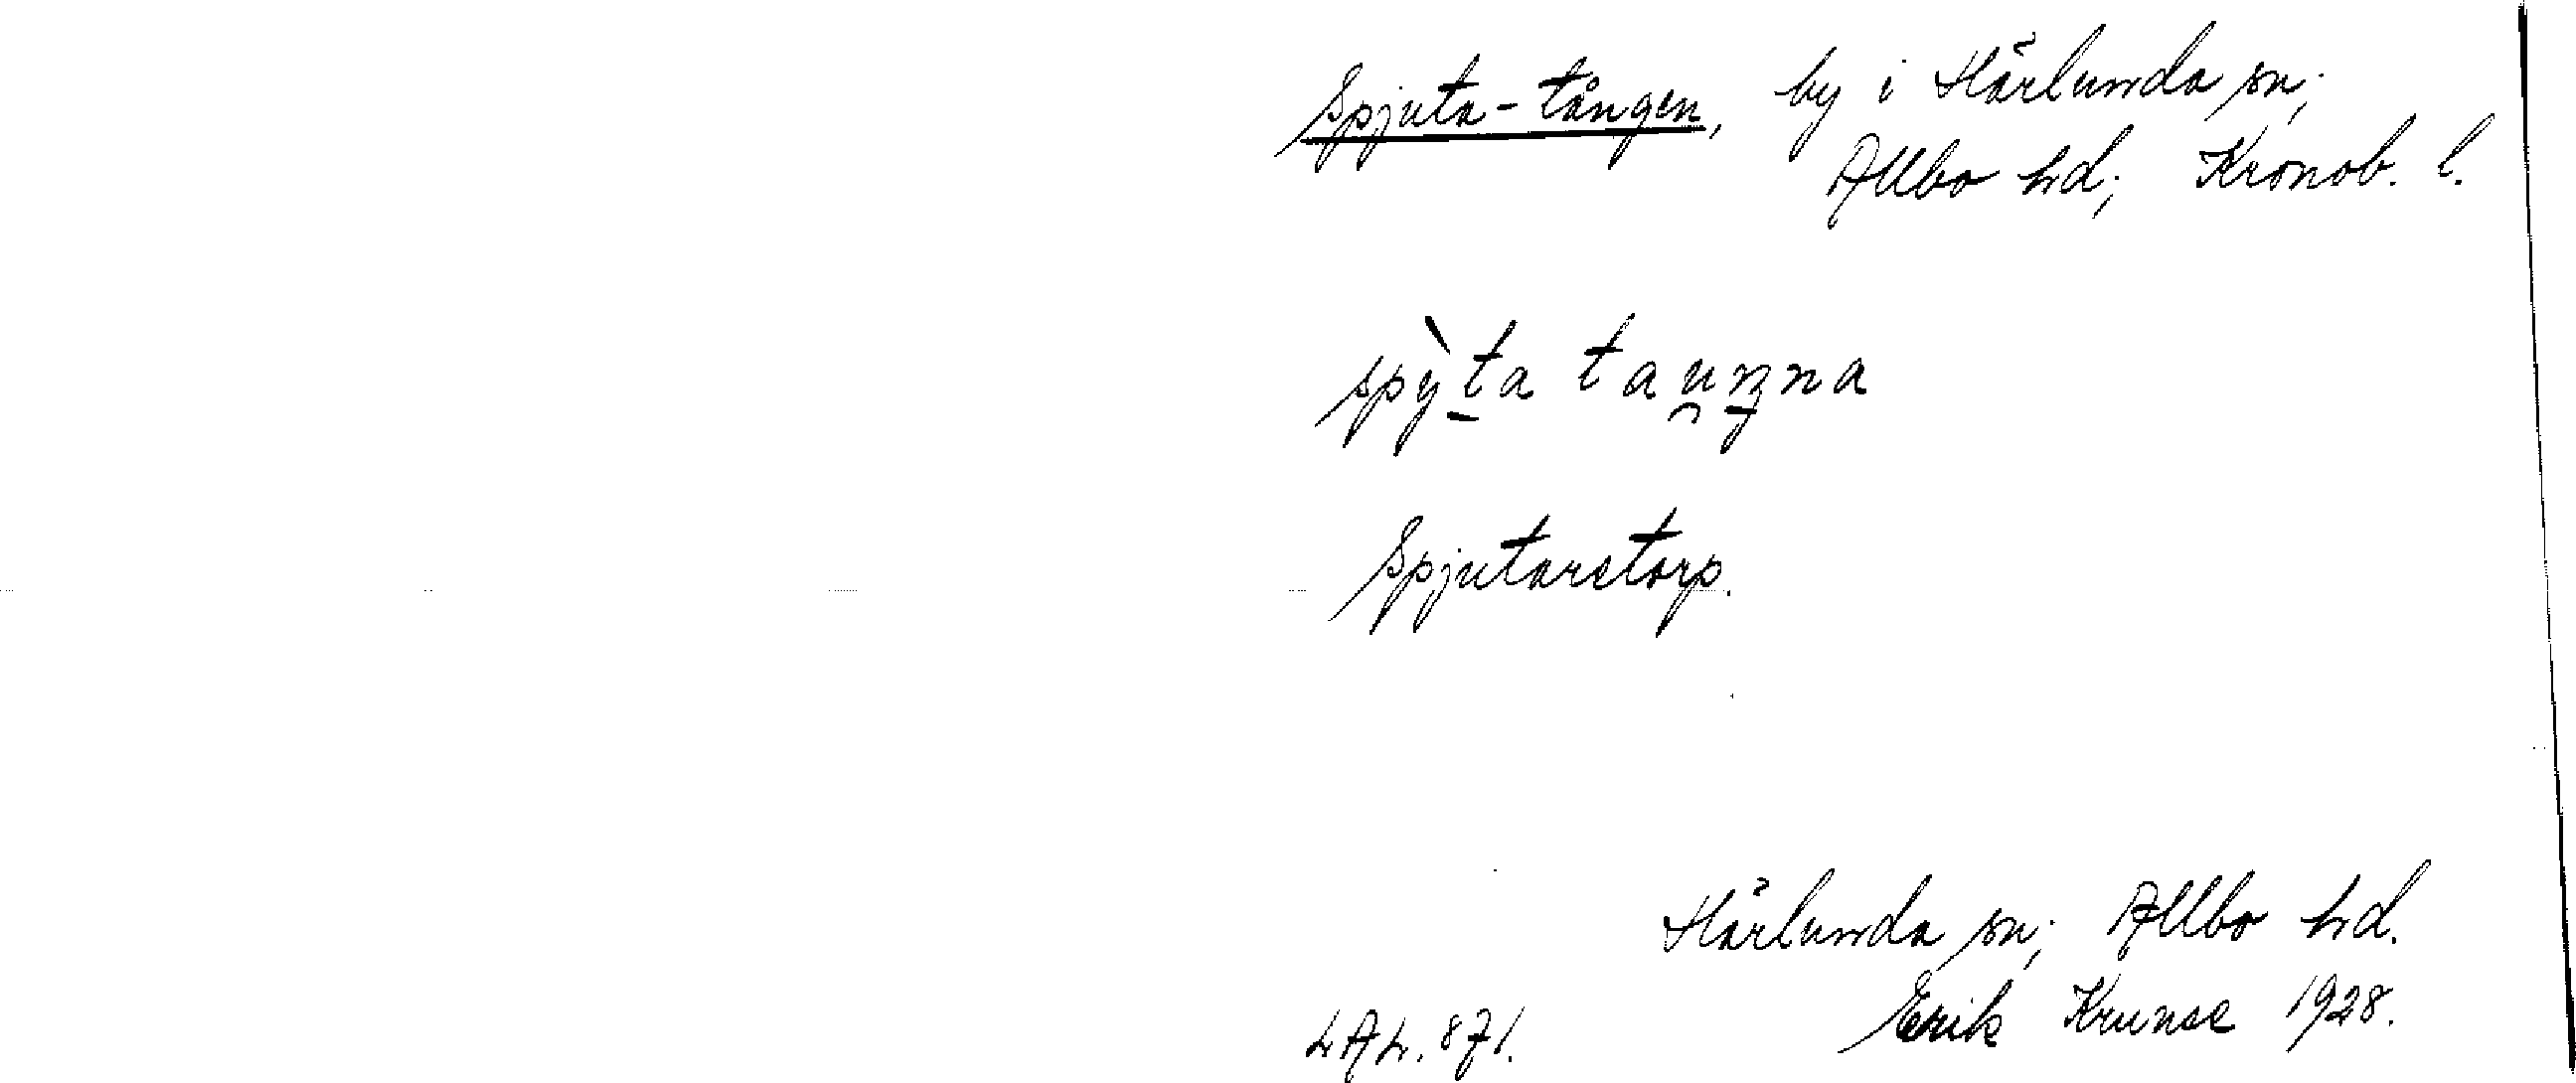 Spjuta-tången, by i Härlunda sn;
Allbo hd; Kronob. l.
spỳta tau̯ŋna
Spjutaretorp.
Härlunda sn; Allbo hd.
LAL. 871. Erik Krunse 1928.